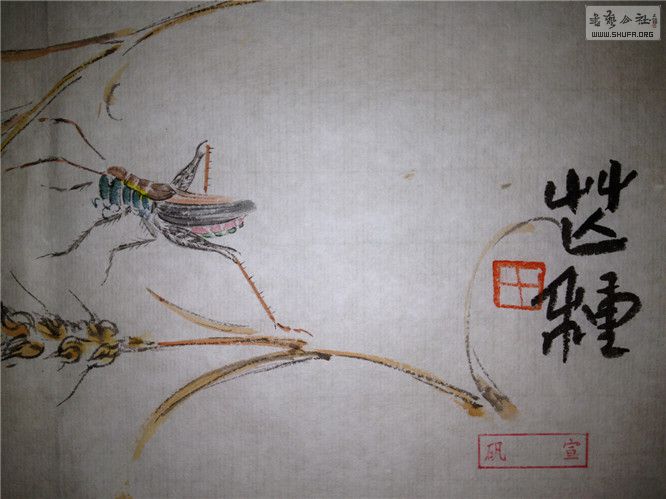 書藝公社
WWW.SHUFA.ORG
芒種
矾 宣